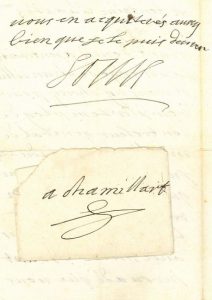 vous en acquitterés aussy
bien que je le puis desirer
Louis
a chamillart